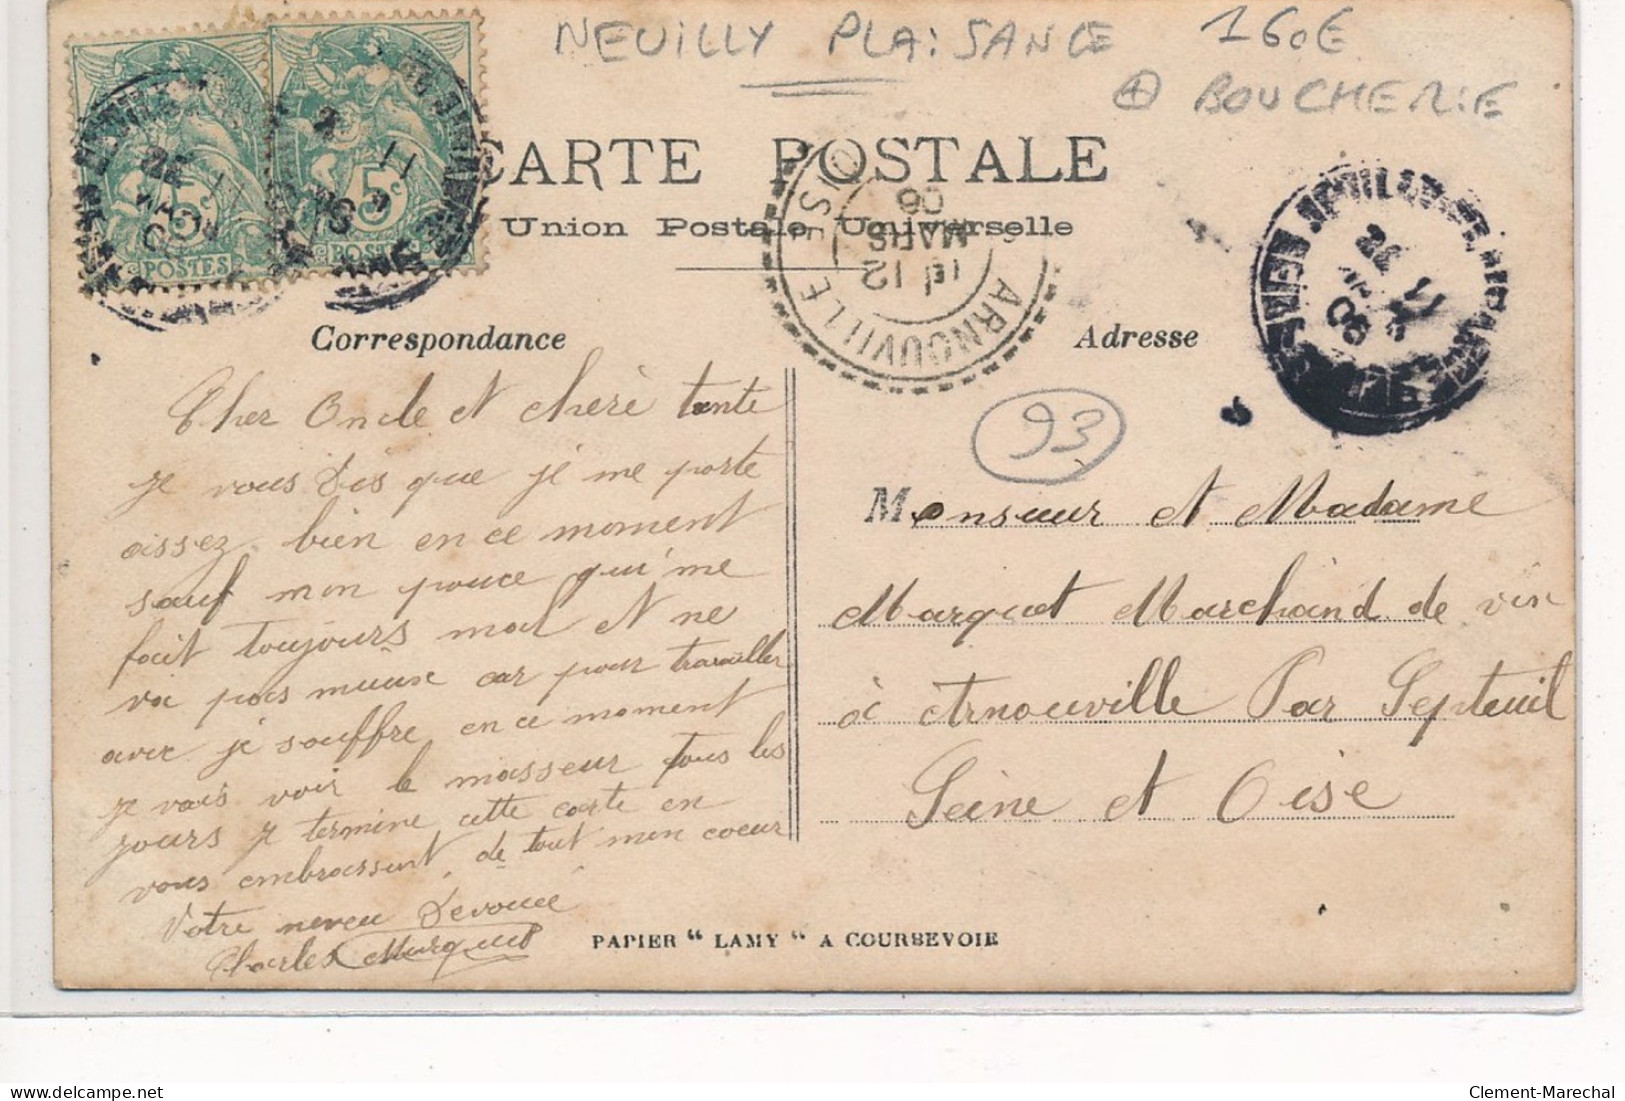 NEUILLY PLAISANCE 160E
+ BOUCHERIE
CARTE POSTALE
Union Postale Universelle
5c
POSTES
5c
POSTES
ARNOUVILLE
12
MARS
06
OISE
Correspondance
Adresse
93
Cher Oncle et cherè tante
je vous dis que je me porte
assez bien en ce moment
sauf mon pouce qui me
fait toujours mal et ne
va pas mieux car pour travailler
avec je souffre en ce moment
je vais voir le masseur tous les
jours je termine cette carte en
vous embrassant de tout mon coeur
Votre neveu Devoué
Charles Marquet
Monsieur et Madame
Marquet Marchand de vin
à Arnouville Par Septeuil
Seine et Oise
PAPIER "LAMY" A COURBEVOIE
delcampe.net
Clement-Marechal